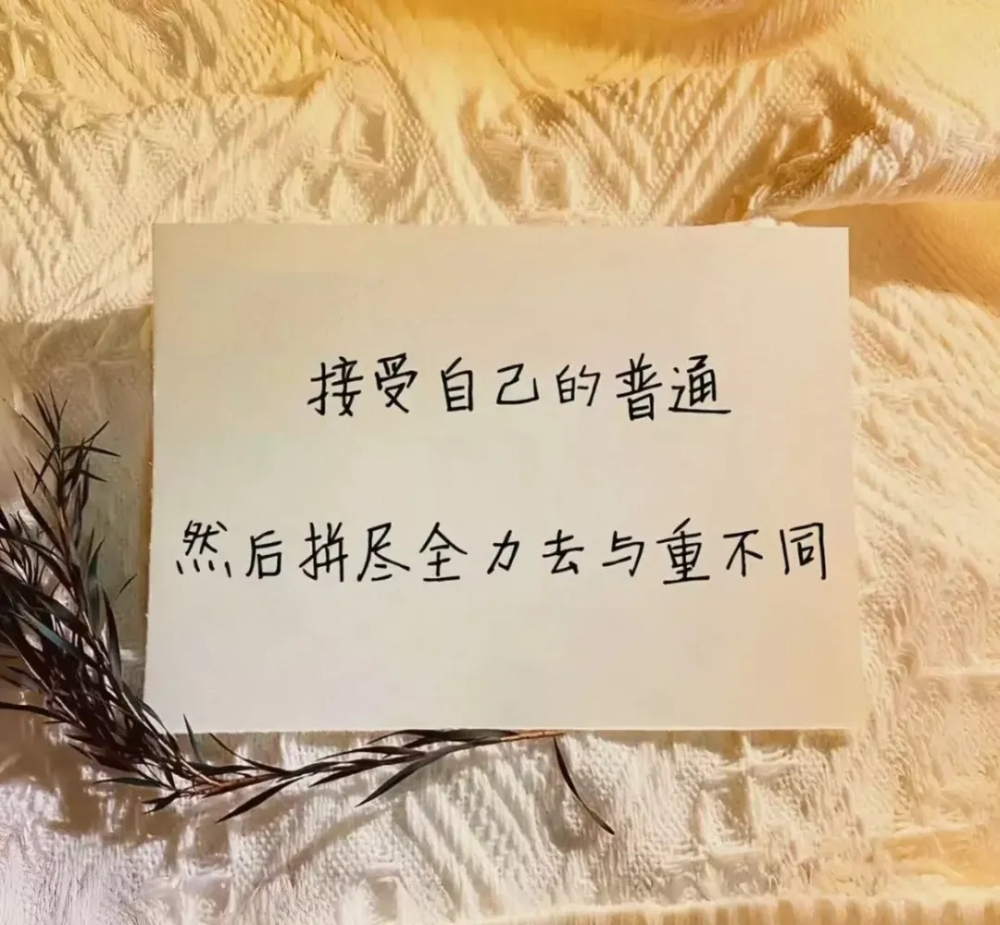 接受自己的普通
然后拼尽全力去与重不同